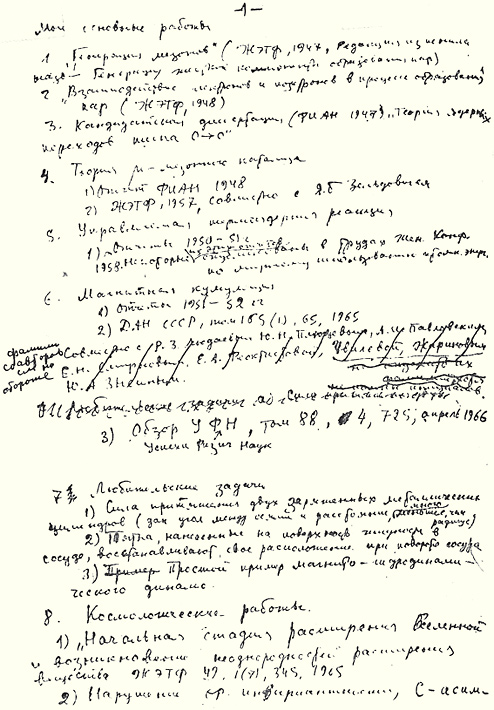 -1-
Мои основные работы
1 „Генерация мезонов" (ЖЭТФ, 1947, Редакция изменила
назв— Генерация жесткой компоненты
2 „Взаимодействие электронов и позитронов в процессе образования
пар (ЖЭТФ, 1948)
3. Кандидатская диссертация (ФИАН 1947) „Теория ядерных
переходов типа 0→0"
4. Теория μ-мезонного катализа
1) Отчет ФИАН 1948
2) ЖЭТФ, 1957, совместно с Я.Б Зельдовичем
5. Управляемая термоядерная реакция
1) Отчеты 1950-51 г.
1958. опубликованы в Трудах Жен. Конф.
по мирному использованию атомн. энерг.
6. Магнитная кумуляция
1) Отчеты 1951-52 гг
2) ДАН СССР, том 165 (1), 65, 1965
фамилии
соавторов
см на
обороте
Совместно с Р.З. Людаевым, Ю.Н. Плющевым, А.И. Павловским
Е.Н. Смирновым, Е.А. Феоктистовой,
Ю.А. Зысиным.
3) Обзор УФН, том 88, 4, 725, апрель 1966
Успехи Физич Наук
7 Любительские задачи
1) Сила притяжения двух заряженных металлических
цилиндров (зан угол между осями и расстояние,
радиус)
2) Пятна, нанесенные на поверхность
сосуде, восстанавливают свое расположение при повороте сосуда
3) Пример Простой пример магнито-гидродинами-
ческого динамо.
8. Космологические работы.
1) „Начальная стадия расширения Вселенной
и возникновение неоднородностей распределения
вещества ЖЭТФ 49, 1(7), 345, 1965
2) Нарушение СР инвариантности, С-асим-